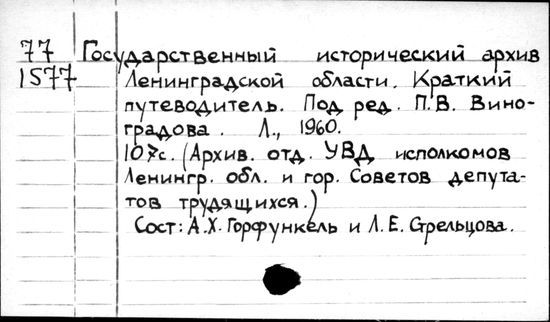 77 Государственный исторический архив
1577 Ленинградской области. Краткий
путеводитель. Под ред. П.В. Вино-
градова. Л., 1960.
107с. (Архив. отд. УВД исполкомов
Ленингр. обл. и гор. Советов депута-
тов трудящихся.)
Сост: А.Х. Горфункель и Л.Е. Стрельцова.